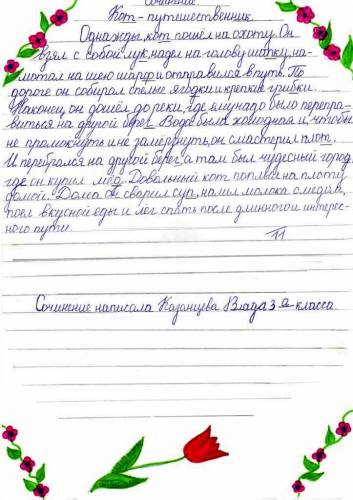 Сочинение.
Кот-путешественник.
Однажды, кот пошёл на охоту. Он
взял с собой лук, надел на голову шапку, на-
мотал на шею шарф и отправился в путь. По
дороге он собирал спелые ягодки и крепкие грибки.
Наконец, он дошёл до реки, где ему надо было перепра-
виться на другой берег. Вода была холодная и, чтобы
не промокнуть и не замёрзнуть, он смастерил плот.
И перебрался на другой берег, а там был чудесный город,
где он купил мёд. Довольный кот поплыл на плоту
домой. Дома он сварил суп, налил молока с медом,
поел вкусной еды и лёг спать после длинного и интерес-
ного пути.
Сочинение написала Казанцева Влада 3 а класса